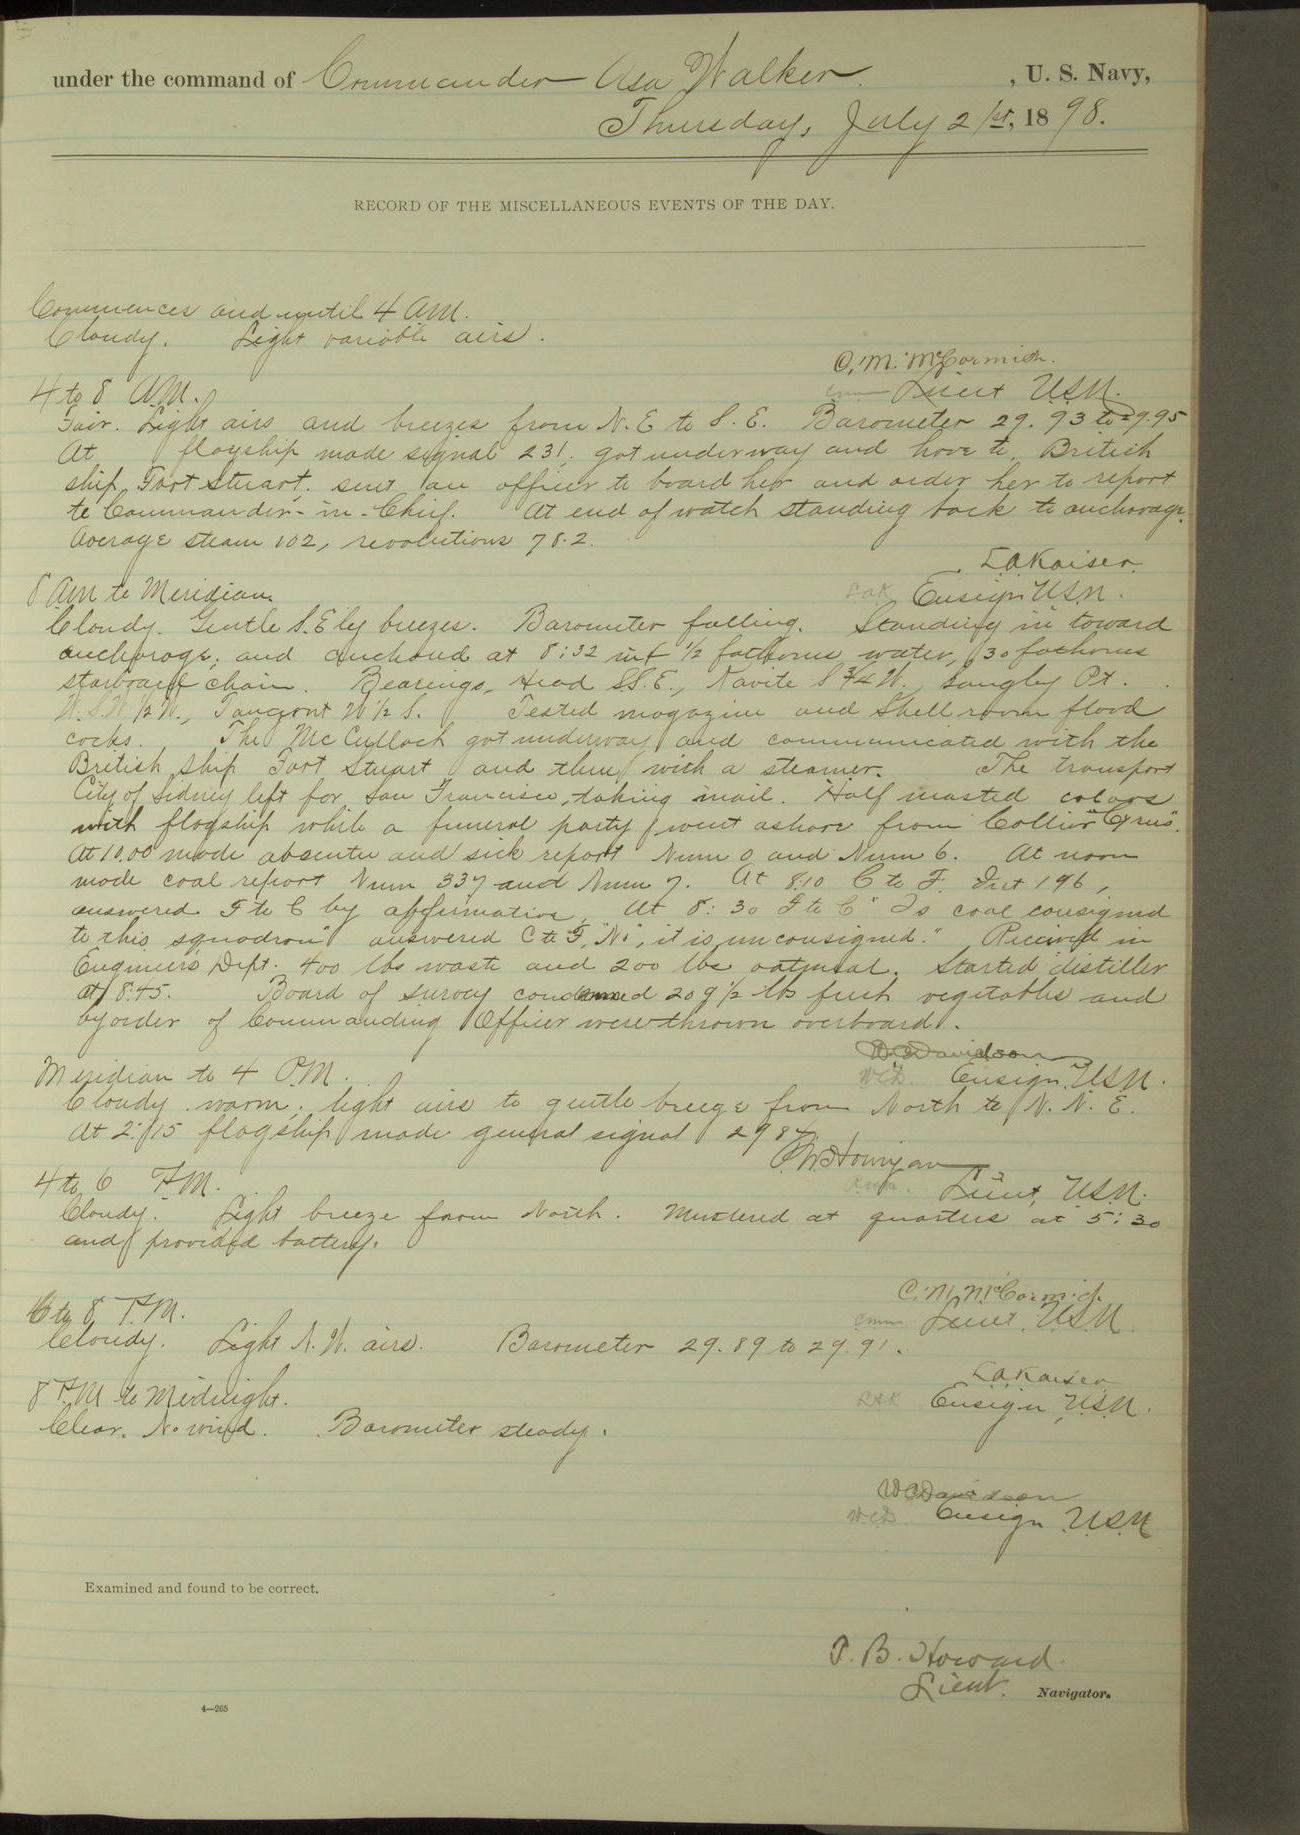 under the command of Commander Asa Walker, U. S. Navy,
Thursday, July 21st, 1898.
RECORD OF THE MISCELLANEOUS EVENTS OF THE DAY.
Commences and until 4 AM.
Cloudy. Light variable airs.
C. M. McCormick.
Lieut U.S.N.
4 to 8 A.M.
Fair. Light airs and breezes from N.E to S.E. Barometer 29.93 to 29.95
At flagship made signal 231. got underway and hove to British
ship, Fort Stuart, sent an officer to board her and order her to report
to Commander-in-Chief. At end of watch standing back to anchorage.
Average steam 102, revolutions 78.2.
L A Kaiser
LAK Ensign U.S.N.
8 AM to Meridian.
Cloudy. Gentle S.E'ly breezes. Barometer falling. Standing in toward
anchorage, and anchored at 8:32 in 1/2 fathoms water, 30 fathoms
starboard chain. Bearings, Head S.S.E., Kavite S 3/4 W., Sangley Pt.
W.S.W 1/2 W., W 1/2 S. Tested magazine and shell room flood
cocks. The McCulloch got underway and communicated with the
British ship Fort Stuart and then with a steamer. The transport
City of Sidney left for San Francisco, taking mail. Half masted colors
with flagship while a funeral party went ashore from Collier "Cyrus".
At 10.00 made absentee and sick report Num 0 and Num 6. At noon
made coal report Num 337 and Num 7. At 8:10 C to F. Int 196,
answered F to C by affirmative. At 8:30 F to C "Is coal consigned
to this squadron" answered C to F, "No, it is unconsigned." Received in
Engineers Dept. 400 lbs waste and 200 lbs oatmeal. Started distiller
at 8:45. Board of survey condemned 209 1/2 lbs fresh vegetables and
by order of Commanding Officer were thrown overboard.
W C Davidson
W.C.D. Ensign U.S.N.
Meridian to 4 P.M.
Cloudy warm, light airs to gentle breeze from North to N.N.E.
At 2:15 flagship made general signal
Lieut, U.S.N.
4 to 6 P.M.
Cloudy. Light breeze from North. Mustered at quarters at 5:30
and provided battery.
C. M. McCormick.
cmm Lieut. U.S.N.
6 to 8 P.M.
Cloudy. Light N.W. airs. Barometer 29.89 to 29.91.
L A Kaiser
LAK Ensign, U.S.N.
8 P.M to Midnight.
Clear. No wind. Barometer steady.
W C Davidson
W.C.D. Ensign U.S.N
Examined and found to be correct.
T. B. Howard
Lieut. Navigator.
4—265